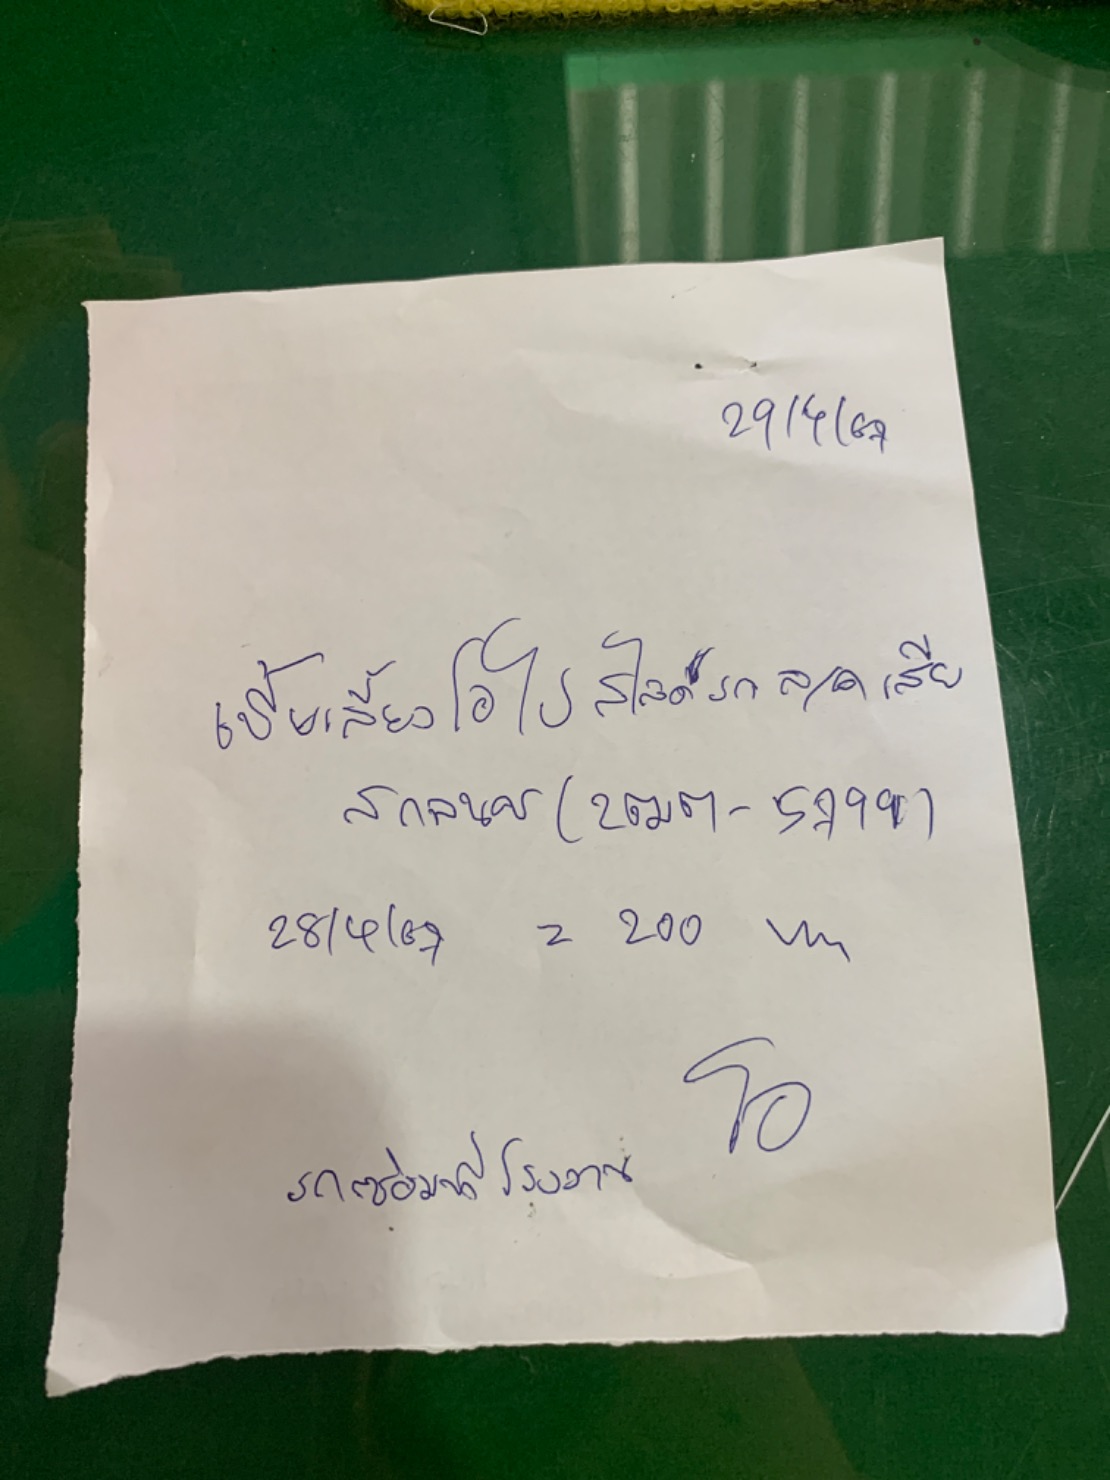 29/4/67
เบี้ยเลี้ยง โอ๋ไป สไลด์รถ ล/ค เสีย
สกลนคร (2ฒต-5799)
28/4/67 = 200 บาท
โอ๋
รถซ่อมที่โรงงาน